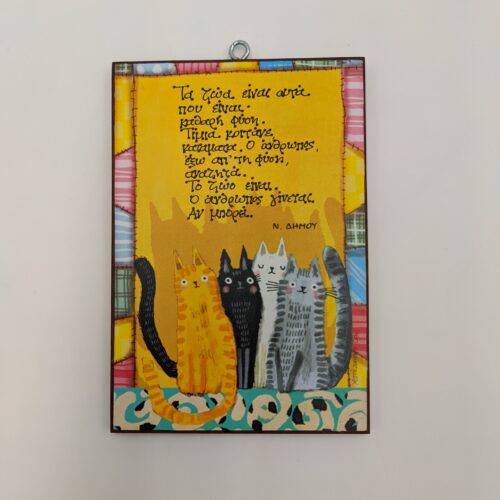 Τα ζώα είναι αυτά
που είναι.
καθαρή φύση.
Τίμια κοιτάνε
κατάματα. Ο άνθρωπος,
έξω απ' τη φύση,
αναζητά.
Το ζώο είναι.
Ο άνθρωπος γίνεται.
Αν μπορεί.
Ν. ΔΗΜΟΥ